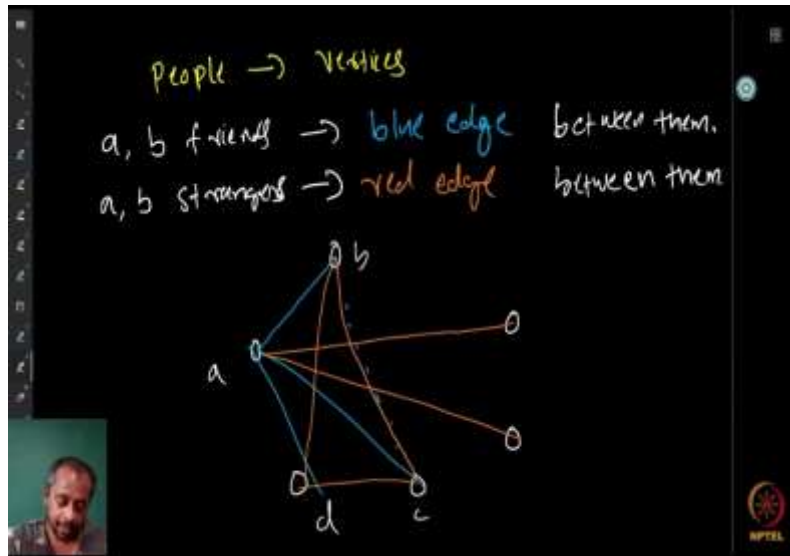 People → vertices
a, b friends → blue edge between them.
a, b strangers → red edge between them
b
a
d
c
NPTEL